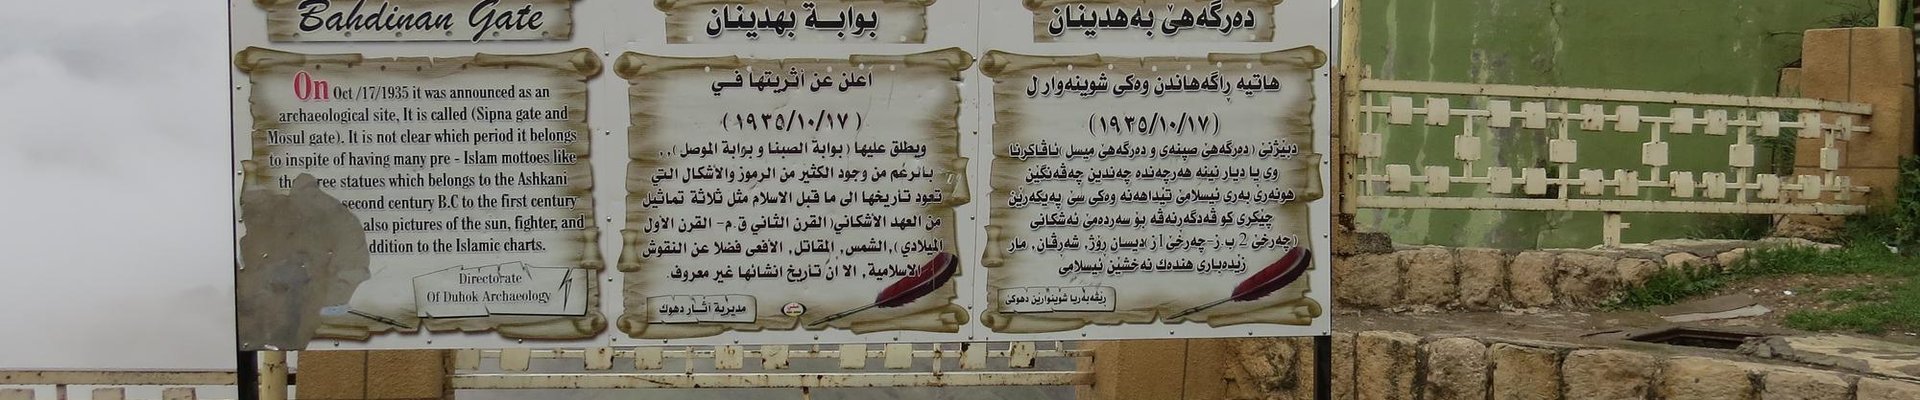 Bahdinan Gate
On Oct /17/1935 it was announced as an
archaeological site, It is called (Sipna gate and
Mosul gate). It is not clear which period it belongs
to inspite of having many pre - Islam mottoes like
statues which belongs to the Ashkani
second century B.C to the first century
also pictures of the sun, fighter, and
to the Islamic charts.
Directorate
Of Duhok Archaeology
بوابة بهدينان
أعلن عن أثريتها في
(١٩٣٥/١٠/١٧)
ويطلق عليها (بوابة الصبنا و بوابة الموصل),,
بالرغم من وجود الكثير من الرموز والأشكال التي
تعود تأريخها الى ما قبل الاسلام مثل ثلاثة تماثيل
من العهد الاشكاني(القرن الثاني ق.م- القرن الأول
الميلادي),الشمس, المقاتل, الأفعى فضلا عن النقوش
الاسلامية, الا ان تأريخ انشائها غير معروف.
مديرية آثار دهوك
دەرگەهێ بەهدینان
هاتیە ڕاگەهاندن وەکی شوینەوار ل
(١٩٣٥/١٠/١٧)
دبێژنێ (دەرگەهێ صپنەی و دەرگەهێ میسل)ئاڤاکرنا
وی یا دیار نینە هەرچەندە چەندین چەڤەنگێن
هونەری بەری ئیسلامێ تێداهەنە وەکی سێ پەیکەرێن
چێکری کو ڤەدگەرنەڤە بۆ سەردەمێ ئەشکانی
(چەرخێ 2 ب.ز-چەرخێ 1ز)دیسان رۆژ, شەرڤان, مار
زێدەباری هندەك نەخشێن ئیسلامی
رێڤەبەریا شوینوارێن دهوکێ